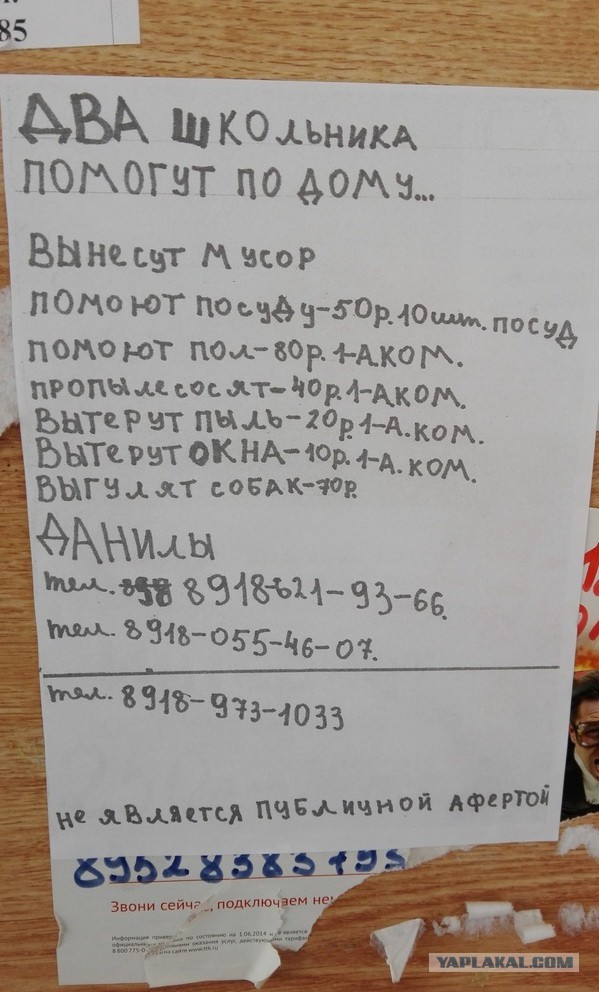 85
ДВА ШКОЛЬНИКА
ПОМОГУТ ПО ДОМУ...
ВЫНЕСУТ МУСОР
ПОМОЮТ ПОСУДУ-50р.10шт. ПОСУД
ПОМОЮТ ПОЛ-80р.1-А.КОМ.
ПРОПЫЛЕСОСЯТ-40р.1-А.КОМ.
ВЫТЕРУТ ПЫЛЬ-20р.1-А.КОМ.
ВЫТЕРУТ ОКНА-10р.1-А.КОМ.
ВЫГУЛЯТ СОБАК-70р.
ДАНИЛЫ
тел. 8918-621-93-66.
тел. 8918-055-46-07.
тел. 8918-973-1033
НЕ ЯВЛЯЕТСЯ ПУБЛИЧНОЙ АФЕРТОЙ
89528383793
Звони сейчас, подключаем
Информация по состоянию на 1.06.2014
оказания услуг, действующими
на сайте www.ttk.ru
YAPLAKAL.COM